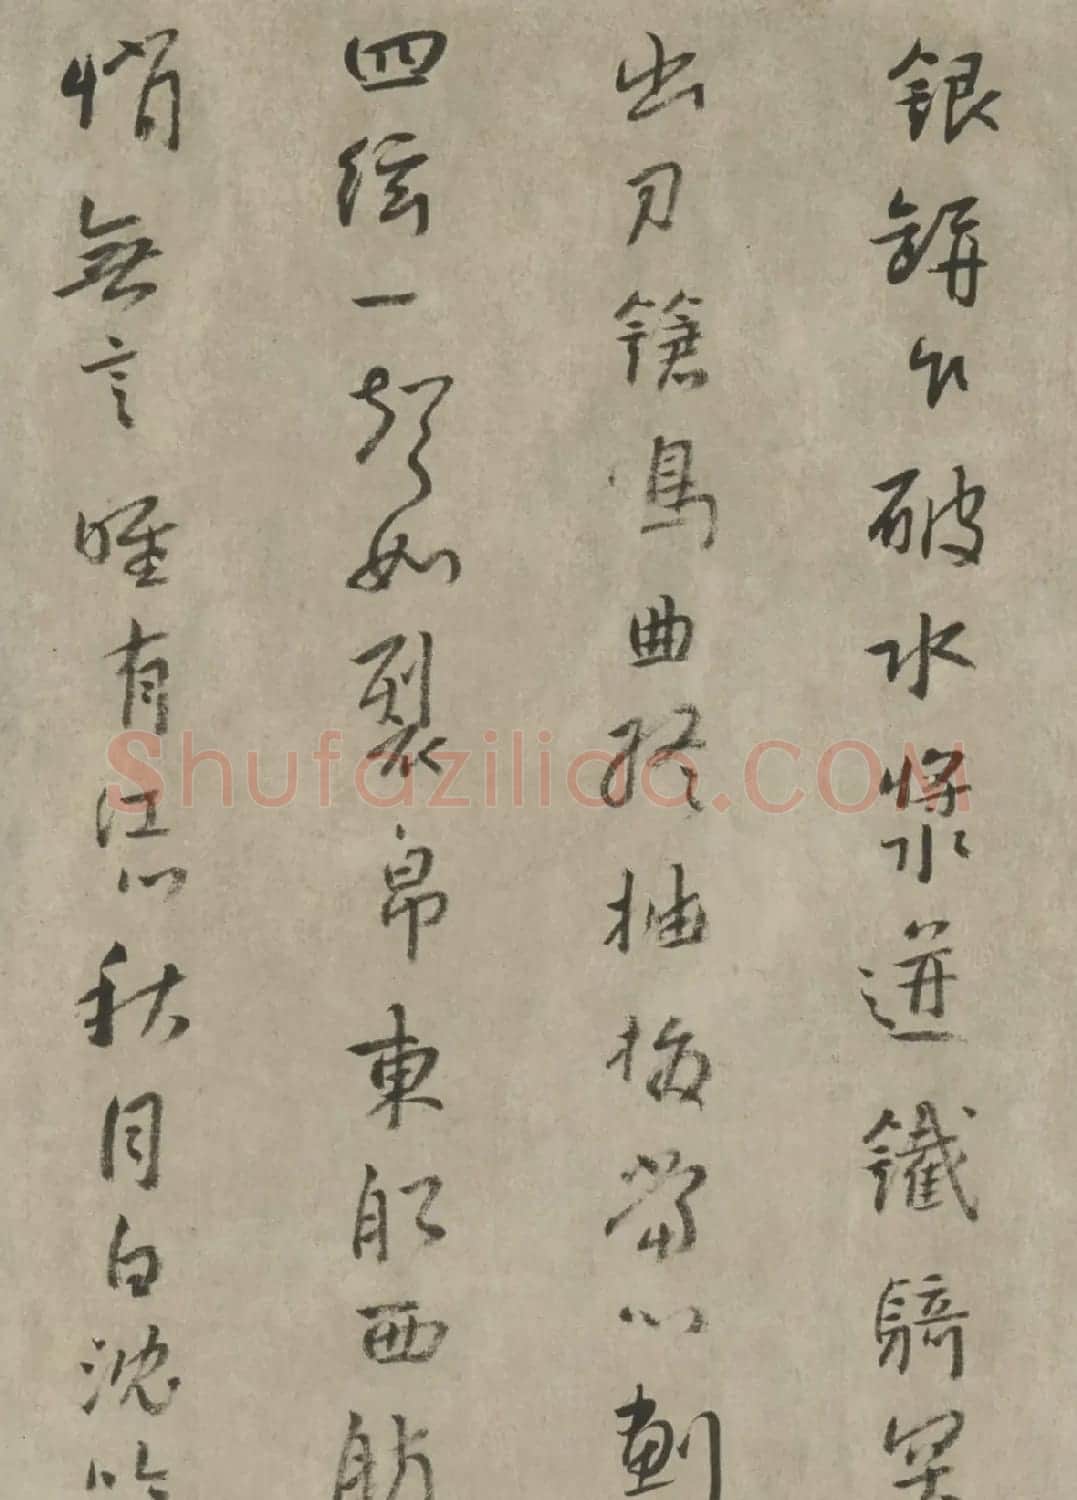 銀缾乍破水漿迸鐵騎突
出刀鎗鳴曲終抽撥當心劃
四絃一聲如裂帛東船西舫
悄無言唯有江心秋月白沈吟
Shufaziliao.COM